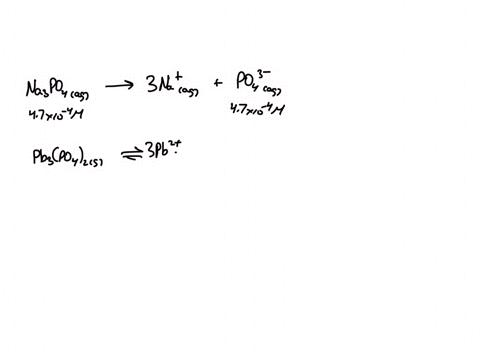 Na₃PO₄(aq) → 3Na⁺(aq) + PO₄³⁻(aq)
4.7×10⁻⁴M 4.7×10⁻⁴M
Pb₃(PO₄)₂(s) ⇌ 3Pb²⁺